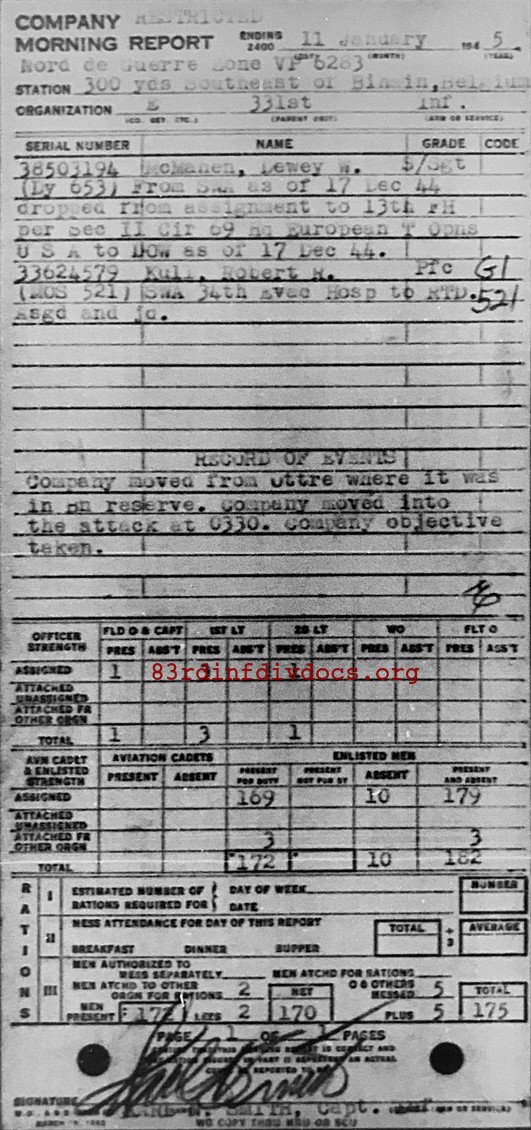 COMPANY RESTRICTED
MORNING REPORT ENDING 2400 11 January 194 5
(DAY) (MONTH) (YEAR)
Nord de Guerre Zone VP 6283
STATION 300 yds Southeast of Bihain, Belgium
ORGANIZATION E 331st Inf.
(CO. DET. ETC.) (PARENT UNIT) (ARM OR SERVICE)
SERIAL NUMBER NAME GRADE CODE
38503194 McMahen, Lewey W. S/Sgt
(Dy 653) From SWA as of 17 Dec 44
dropped from assignment to 13th FH
per Sec II Cir 69 Hq European T Opns
U S A to DOW as of 17 Dec 44.
33624579 Kull, Robert R. Pfc GI
(MOS 521) SWA 34th Evac Hosp to RTD. 521
Asgd and jd.
RECORD OF EVENTS
Company moved from Ottre where it was
in Bn reserve. Company moved into
the attack at 0330. Company objective
taken.
OFFICER STRENGTH FLD O & CAPT 1ST LT 2D LT WO FLT O
PRES ABS'T PRES ABS'T PRES ABS'T PRES ABS'T PRES ABS'T
ASSIGNED 1
83rdinfdivdocs.org
ATTACHED UNASSIGNED
ATTACHED FR OTHER ORGN
TOTAL 1 3 1
AVN CADET & ENLISTED STRENGTH AVIATION CADETS ENLISTED MEN
PRESENT ABSENT PRESENT FOR DUTY PRESENT NOT FOR DY ABSENT PRESENT AND ABSENT
ASSIGNED 169 10 179
ATTACHED UNASSIGNED
ATTACHED FR OTHER ORGN 3 3
TOTAL 172 10 182
RATIONS
I ESTIMATED NUMBER OF RATIONS REQUIRED FOR DAY OF WEEK DATE NUMBER
II MESS ATTENDANCE FOR DAY OF THIS REPORT TOTAL ÷ 3 AVERAGE
BREAKFAST DINNER SUPPER
III MEN AUTHORIZED TO MESS SEPARATELY MEN ATCHD FOR RATIONS
MEN ATCHD TO OTHER ORGN FOR RATIONS 2 NET O & OTHERS MESSED 5 TOTAL
MEN PRESENT 172 LESS 2 170 PLUS 5 175
PAGE 1 OF 1 PAGES
SIGNATURE
SMITH, Capt. Inf
(ARM OR SERVICE)